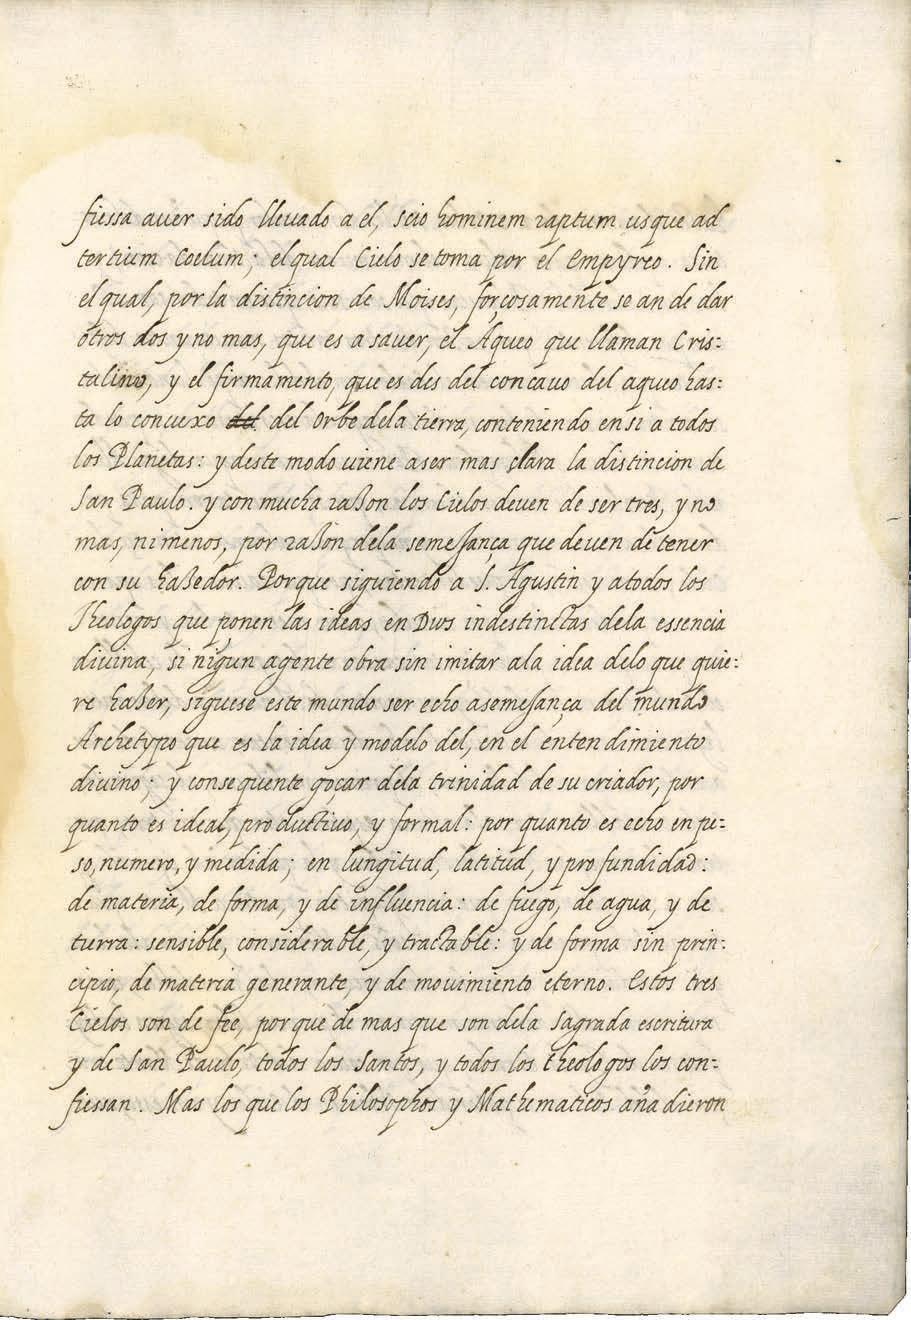 fiessa auer sido lleuado a el, scio hominem raptum usque ad
tertium Coelum; el qual Cielo se toma por el Empyreo. Sin
el qual, por la distincion de Moises, forçosamente se an de dar
otros dos y no mas, que es a sauer, el Aqueo que llaman Cris=
talino, y el firmamento, que es des del concauo del aqueo has=
ta lo conuexo del del Orbe dela tierra, conteniendo en si a todos
los Planetas: y deste modo uiene a ser mas clara la distincion de
San Paulo. y con mucha raßon los Cielos deuen de ser tres, y no
mas, ni menos, por raßon dela semejança que deuen de tener
con su haßedor. Porque siguiendo a S. Agustin y a todos los
Theologos que ponen las ideas en Dios indestinctas dela essencia
diuina, si nigun agente obra sin imitar a la idea delo que quie=
re haßer, siguese este mundo ser echo a semejança del mundo
Archetypo que es la idea y modelo del, en el entendimiento
diuino; y consequente goçar dela trinidad de su criador, por
quanto es ideal, productiuo, y formal: por quanto es echo en pe=
so, numero, y medida; en lungitud, latitud, y profundidad:
de materia, de forma, y de influencia: de fuego, de agua, y de
tierra: sensible, considerable, y tractable: y de forma sin prin=
cipio, de materia generante, y de mouimiento eterno. Estos tres
Cielos son de fee, porque de mas que son dela Sagrada escritura
y de San Paulo, todos los Santos, y todos los theologos los con=
fiessan. Mas los que los Philosophos y Mathematicos añadieron